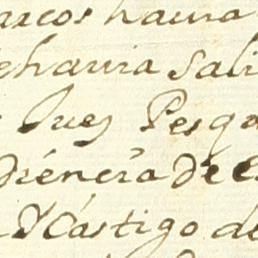 arcos havia
ehavia Sali
Juez Pesq
diencia de e
Y Castigo de